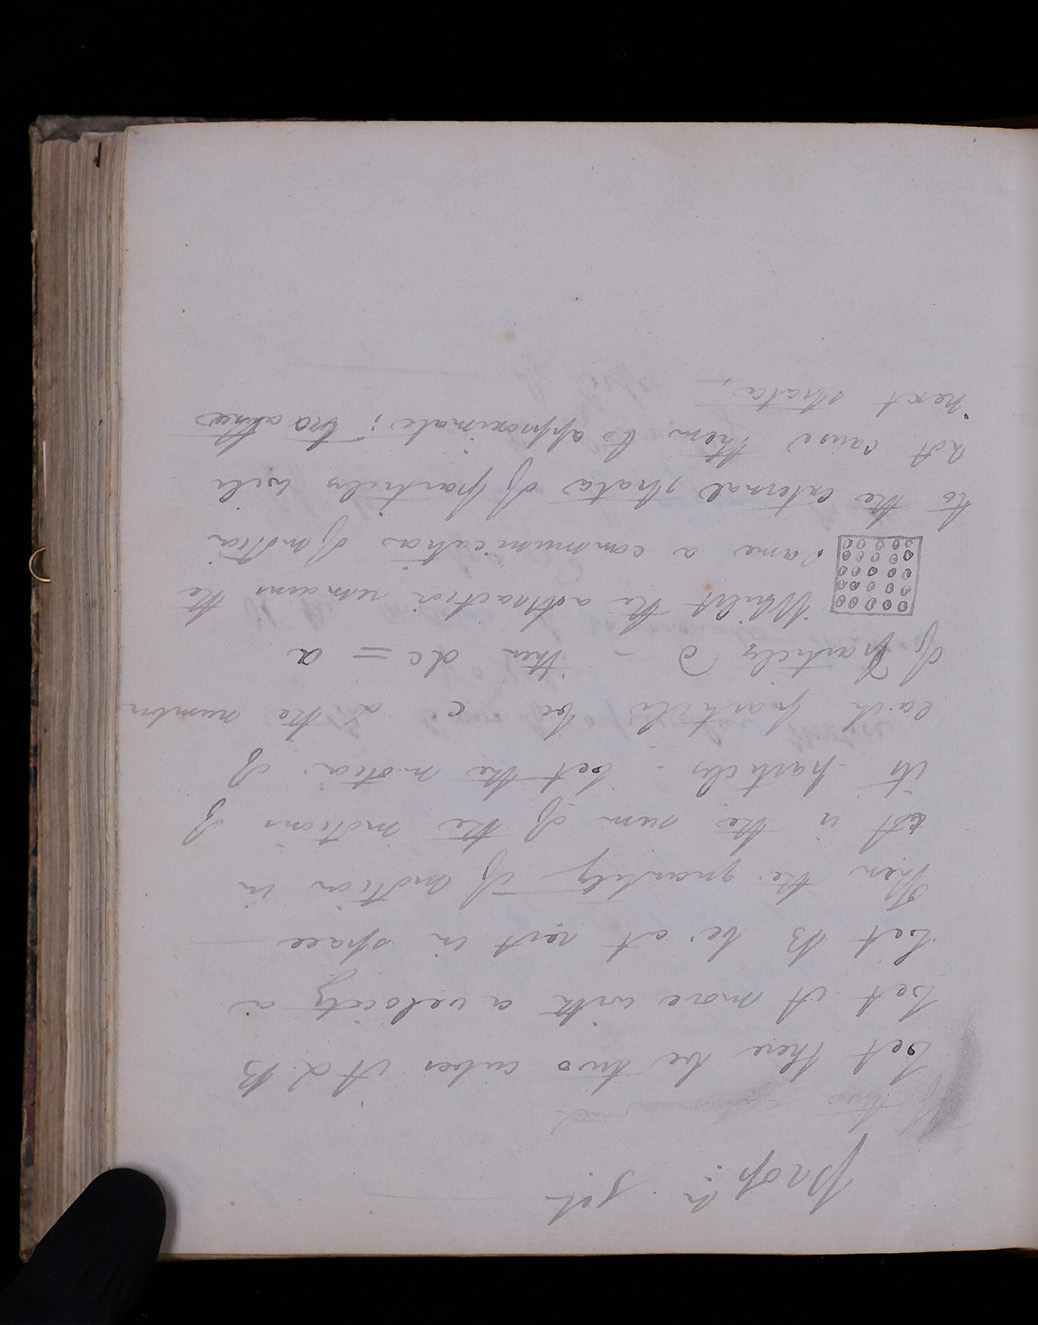 Prop:n 1st.
two
Let there be two cubes A & B
Let A move with a velocity a
Let B be at rest in space
Then the quantity of motion in
A is the sum of the motions of
its particles - Let the motion of
each particle be c & the number
of Particles d - then dc = a
Whilst the attraction remains the
same a communication of motion
to the external strata of particles will
not cause them to approximate; the
next strata.